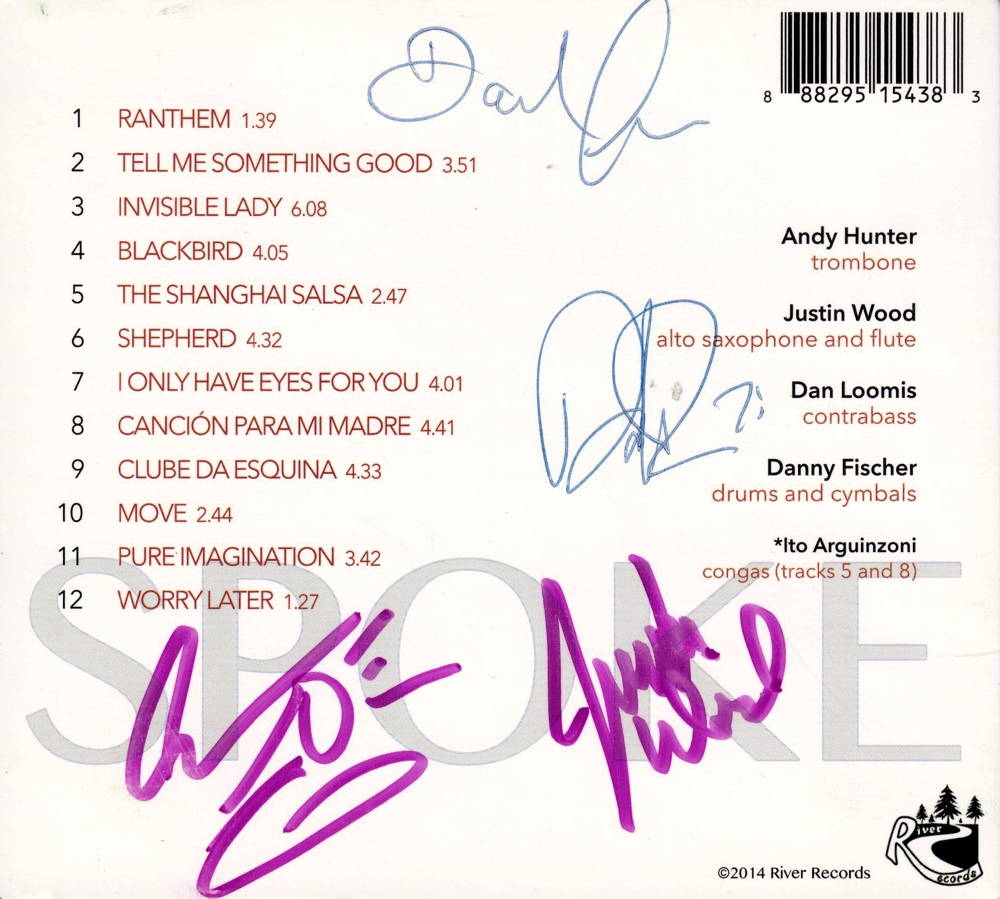 8 88295 15438 3
1 RANTHEM 1.39
2 TELL ME SOMETHING GOOD 3.51
3 INVISIBLE LADY 6.08
4 BLACKBIRD 4.05
5 THE SHANGHAI SALSA 2.47
6 SHEPHERD 4.32
7 I ONLY HAVE EYES FOR YOU 4.01
8 CANCIÓN PARA MI MADRE 4.41
9 CLUBE DA ESQUINA 4.33
10 MOVE 2.44
11 PURE IMAGINATION 3.42
12 WORRY LATER 1.27
Andy Hunter
trombone
Justin Wood
alto saxophone and flute
Dan Loomis
contrabass
Danny Fischer
drums and cymbals
*Ito Arguinzoni
congas (tracks 5 and 8)
SPOKE
River
Records
©2014 River Records